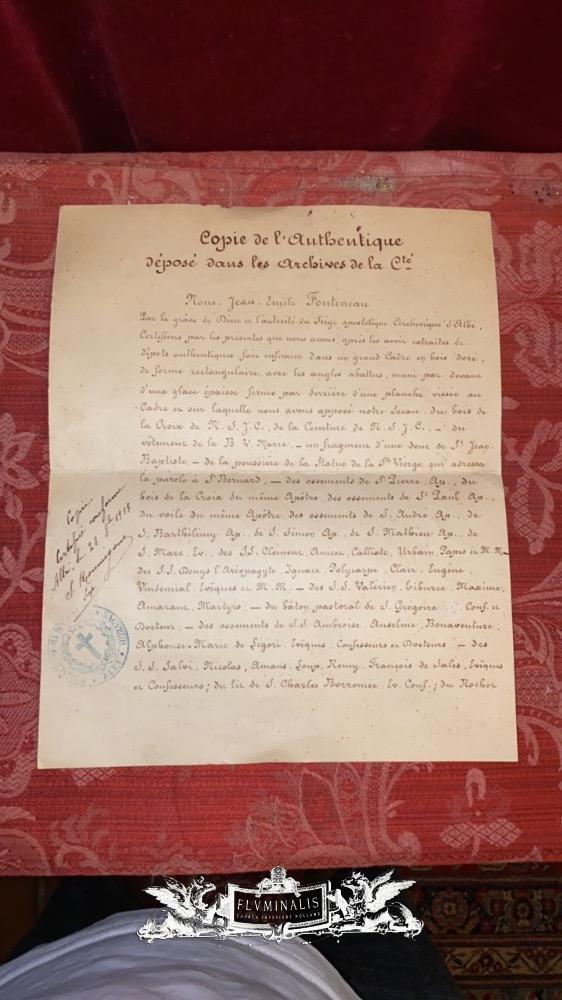 Copie de l'Authentique
déposé dans les Archives de la Cté
Nous, Jean-Emile Fonteneau
Par la grâce de Dieu et l'autorité du Siège apostolique, Archevêque d'Albi,
Certifions par les présentes que nous avons, après les avoir extraites de
dépots authentiques, fait enfermer dans un grand Cadre en bois doré,
de forme rectangulaire, avec les angles abattus, muni par devant
d'une glace épaisse, fermé par derrière d'une planche vissée au
Cadre et sur laquelle nous avons apposé notre Sceau, du bois de
la Croix de N. S. J. C., _ de la Ceinture de N. S. J. C., _ du
vêtement de la B. V. Marie, _ un fragment d'une dent de St Jean
Baptiste, _ de la poussière de la Statue de la Ste Vierge qui adressa
la parole à St Bernard, _ des ossements de St Pierre, Ap., du
bois de la Croix du même Apôtre, des ossements de St Paul, Ap.,
du voile du même Apôtre, des ossements de S. André, Ap., de
S. Barthélemy, Ap., de S. Simon, Ap., de S. Mathieu, Ap., de
S. Marc, Ev., des SS. Clément, Anicet, Calliste, Urbain, Papes et M. M._
des S.S. Denys l'Aréopagyte, Ignace, Polycarpe, Clair, Eugène,
Vindemial, Evêques et M. M. _ des S.S. Valérien, Tiburce, Maxime,
Amarant, Martyrs, _ du bâton pastoral de S. Grégoire Conf. et
Docteur, _ des ossements de S.S. Ambroise, Anselme, Bonaventure,
Alphonse-Marie de Ligori, Evêques, Confesseurs et Docteurs, _ des
S.S. Salvi, Nicolas, Amans, Loup, Remy, François de Sales, Evêques
et Confesseurs; du lit de S. Charles Borromée, Ev. Conf.; du Rocher
Copie
Certifiée conforme
Albi, le 28
FLVMINALIS
CHURCH INTERIORS HOLLAND